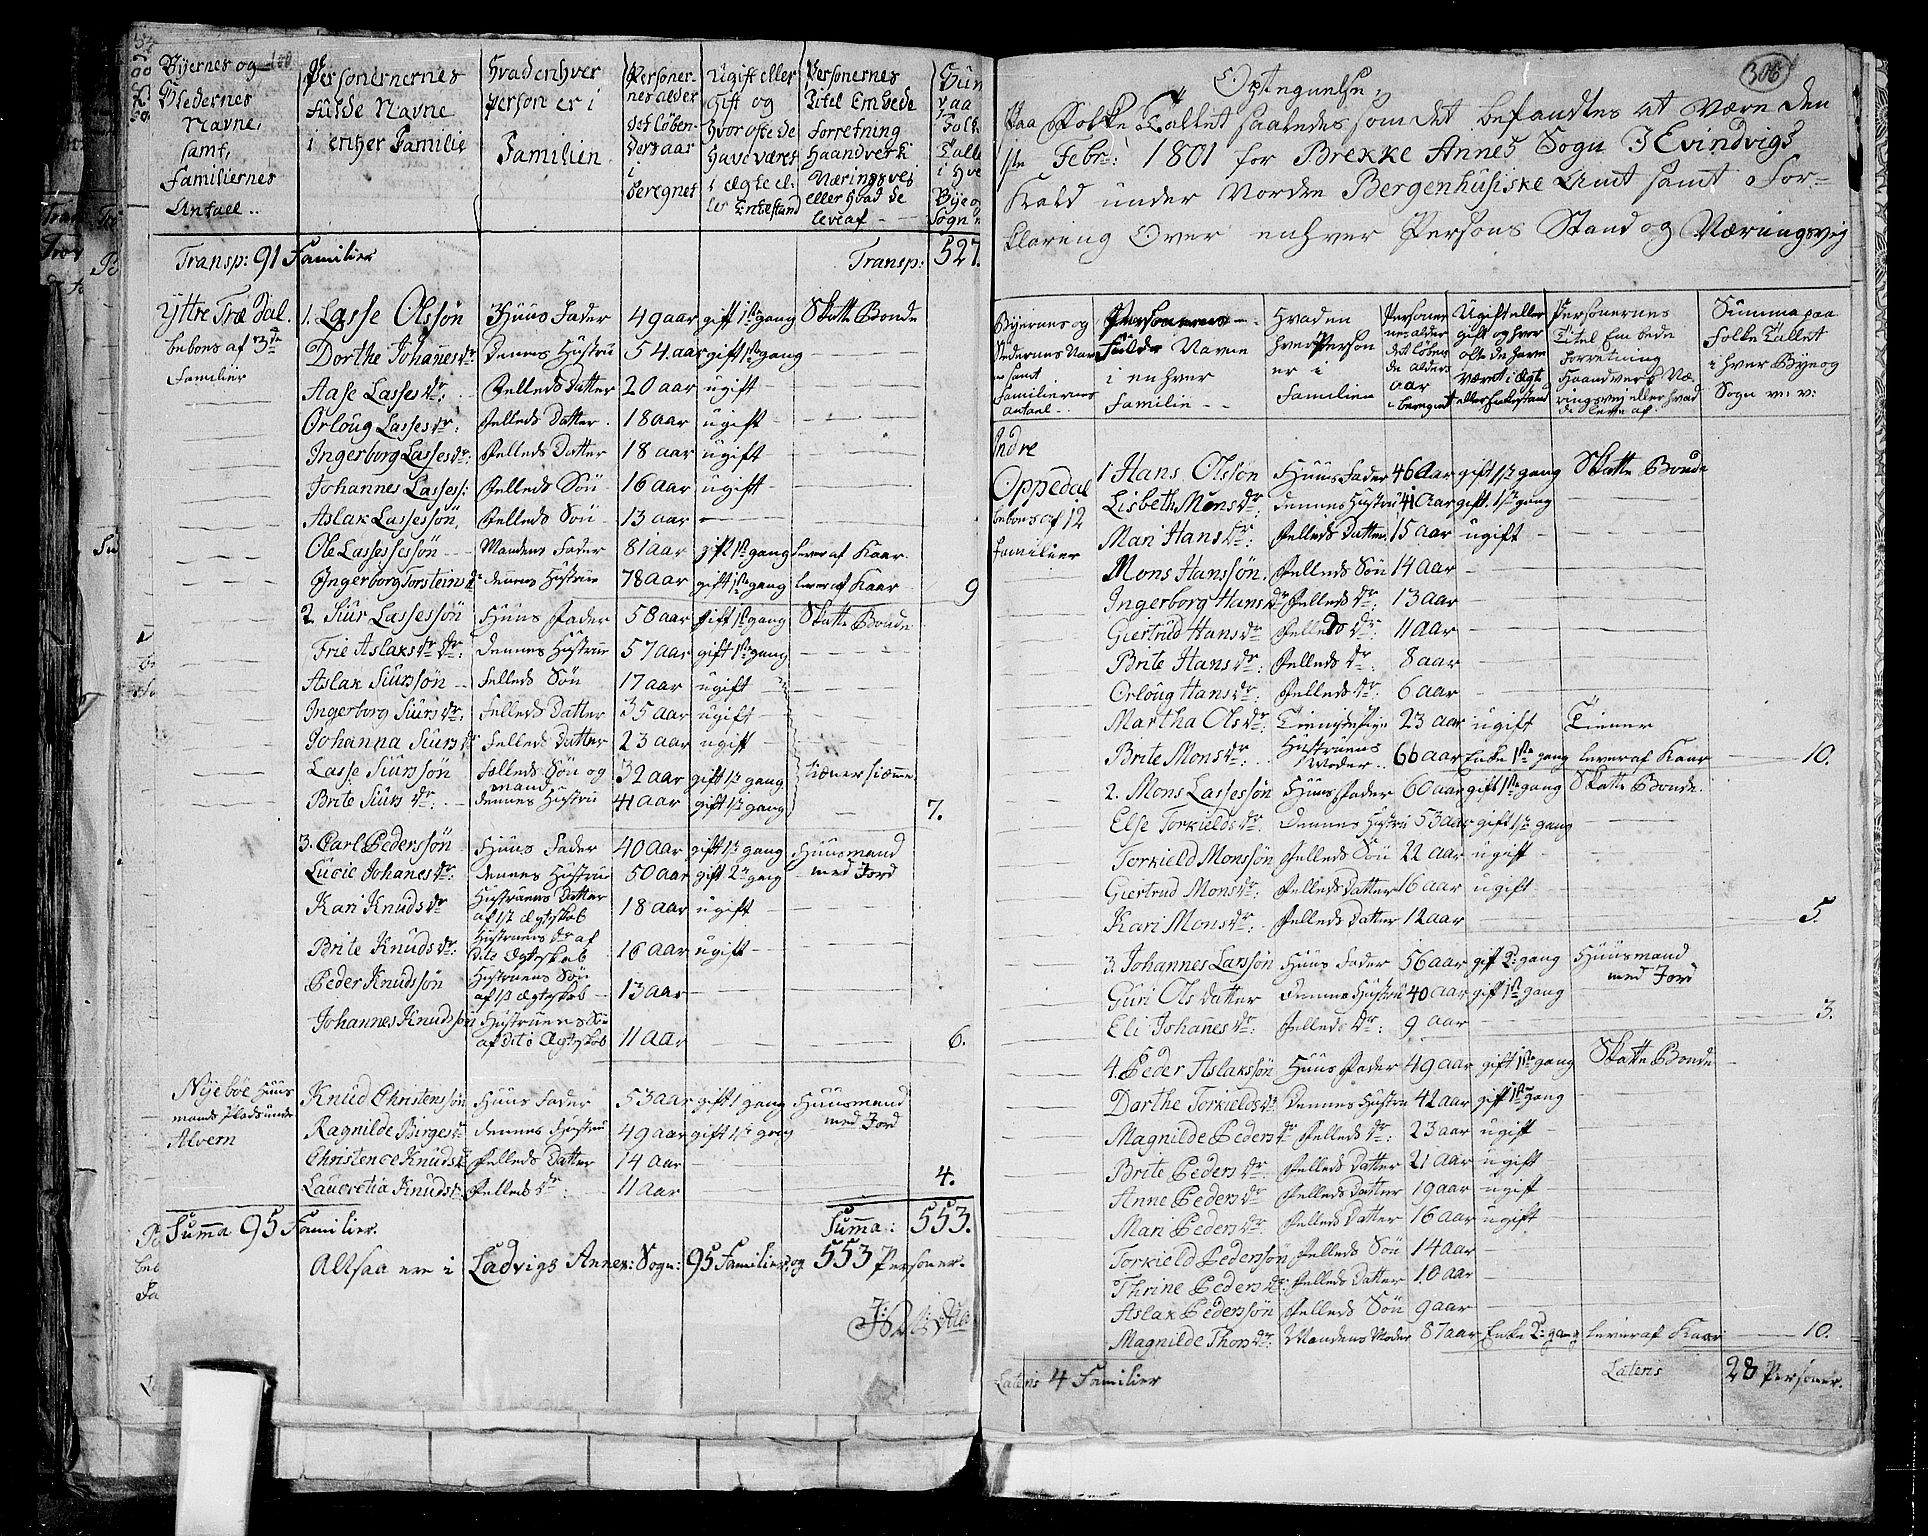 Byernes og
Stedernes
Navne,
samt,
Familiernes
Antael ..
Personernernes
fulde Navne
i enher Familie
Hvad enhver
person er i
Familien
Personer-
nes alder
det løben-
des aar
i
beregnet
Ugift eller
Gift og
hvor ofte de
have været
i ægte el-
ler Enkestand
Personernes
Titel Embede
forretning
Haandverk
Næringsvej
eller hvad de
leve af
Transp: 91 Familier Transp: 527.
Yttre Træ Dal. 1. Lasse Olssøn Huus Fader 49 aar gift 1ste gang Skatte Bonde
bebons af 3de Dorthe Johanesdr Dennes Hustru 54. aar gift 1ste gang
Familier
Aase Lassesdr: Pelleds Datter 20 aar ugift
Orloug Lassesdr: Pelleds Datter 18 aar ugift
Ingerborg Lassesdr: Pelleds Datter 18 aar ugift
Johannes Lasses: Pelleds Søn 16 aar ugift
Aslak Lassessøn, Pelleds Søn 13 aar
Ole Lassessessøn Mandens Fader 81 aar gift 1ste gang lever af Kaar
Ingerborg Torsteinsdr dennes Hustrue 78 aar gift 1ste gang lever af Kaar 9
2. Siur Lassessøn Huus Fader 58 aar gift 1ste gang Skatte Bonde
Frie Aslaksdr dr: Dennes Hustrue 57 aar gift 1ste gang
Aslak Siurssøn Felleds Søn 17 aar ugift
Ingerborg Siursdr: Felleds Datter 35 aar ugift
Johanna Siursdr Felleds Datter 23 aar ugift
Lasse Siurssøn Felleds Søn og mand 32 aar gift 1ste gang tiener hiemme
Brite Siursdr: dennes Hustru 41 aar gift 1ste gang 7.
3. Carl Pederssøn Huus Fader 40 aar gift 1ste gang Huusmand
Lucie Johanesdr: dennes Hustrue 50 aar gift 2den gang med Jord
Kari Knudsdr Hustruens Datter
af 1st Ægteskab 18 aar ugift
Brite Knudsdr: Hustruens dr af
dito Ægteskab 16 aar ugift
Peder Knudssøn Hustruens Søn
af 1st Ægteskab 13 aar
Johannes Knudssøn Hustruens Søn
af dito Ægteskab 11 aar 6.
Nyebøe Huus Knud Christenssøn Huus Fader 53 aar gift 1 gang Huusmand
mands plads under Ragnilde Birgesdr dennes Hustru 49 aar gift 1ste gang med Jord
Alvern
Christence Knudsdr Pelleds Datter 14 aar
Laucretia Knudsd: Pelleds dr: 11 aar 4.
Summa 95 Familier. Summa: 553.
Altsaa ere i Ladvigs Annex: Sogn: 95 Familier, og 553 Personer.
308
Optegnelse
Paa Folke Tallet saaledes som det befandtes at være den
1ste Febr: 1801 for Brekke Annex Sogn I Evindvigs
Kald under Norden Bergenhusiske Amt samt For-
klaring Over enhver Persons Stand og Næringsvej
Byernes og
Stedernes Nav
ne samt
Familiernes
antael
Personernes
Fulde Navne
i en hver
Familie
Hvad en
hver Person
er i
Familien
Personer
nes alder
det løben
de alders
aar
beregnet
Ugift eller
gift og hvor
ofte de have
været i Ægte
eller Enkestand
Personernes
Titel Em bede
forretning
Haandverk Næ
ringsvej eller hvad
de leve af
Summa paa
Folke Tallet
i hver Bye og
Sogn m: v:
Indre
Oppedal 1 Hans Olssøn Huus Fader 46 aar gift 1ste gang Skatte Bonde
bebons af 12 Lisbeth Monsdr: dennes Hustru 41 aar gift 1ste gang
Familier Mari Hansdr: Pelleds Datter 15 aar ugift
Mons Hanssøn. Pelleds Søn 14 aar
Ingerborg Hansdr Pelleds dr: 13 aar
Giertrud Hansdr: Pelleds dr: 11 aar
Brite Hansdr: Pelleds dr: 8 aar
Orloug Hansdr: Pelleds dr: 6 aar
Martha Olsdr: Tienistepige 23 aar ugift Tiener
Brite Monsdr: Hustruens Moder 66 aar Enke 1ste gang lever af Kaar 10.
2. Mons Lassessøn Huus Fader 60 aar gift 1ste gang Skatte Bonde.
Else Torkieldsdr: Dennes Hustru 53 aar gift 1ste gang
Torkield Monssøn Pelleds Søn 22 aar ugift
Giertrud Monsdr: Pelleds Datter 16 aar ugift
Kari Monsdr: Pelleds Datter 12 aar 5.
3. Johannes Larssøn Huus Fader 56 aar gift 2: gang Huusmand
Guri Ols datter dennes Hustru 40 aar gift 1ste gang med Jord
Eli Johanesdr: Pelleds dr: 9 aar 3.
4. Peder Aslakssøn Huus Fader 49 aar gift 1ste gang Skatte Bonde
Darthe Torkieldsdr Dennes Hustru 42 aar gift 1ste gang
Magnilde Pedersdr Pelleds dr: 23 aar ugift
Brite Pedersdr: Pelleds Datter 21 aar ugift
Anne Pedersdr: Pelleds Datter 19 aar ugift
Mari Pedersdr: Pelleds Datter 16 aar ugift
Torkield Pederssøn Pelleds Søn 14 aar
Thrine Pedersdr: Pelleds Datter 10 aar
Aslak Pederssøn Pelleds Søn 9 aar
Magnilde Thorsdr: Mandens Moder 87 aar Enke 2: gang lever af Kaar 10.
Laters 4 Familier Laters 28 Personer.